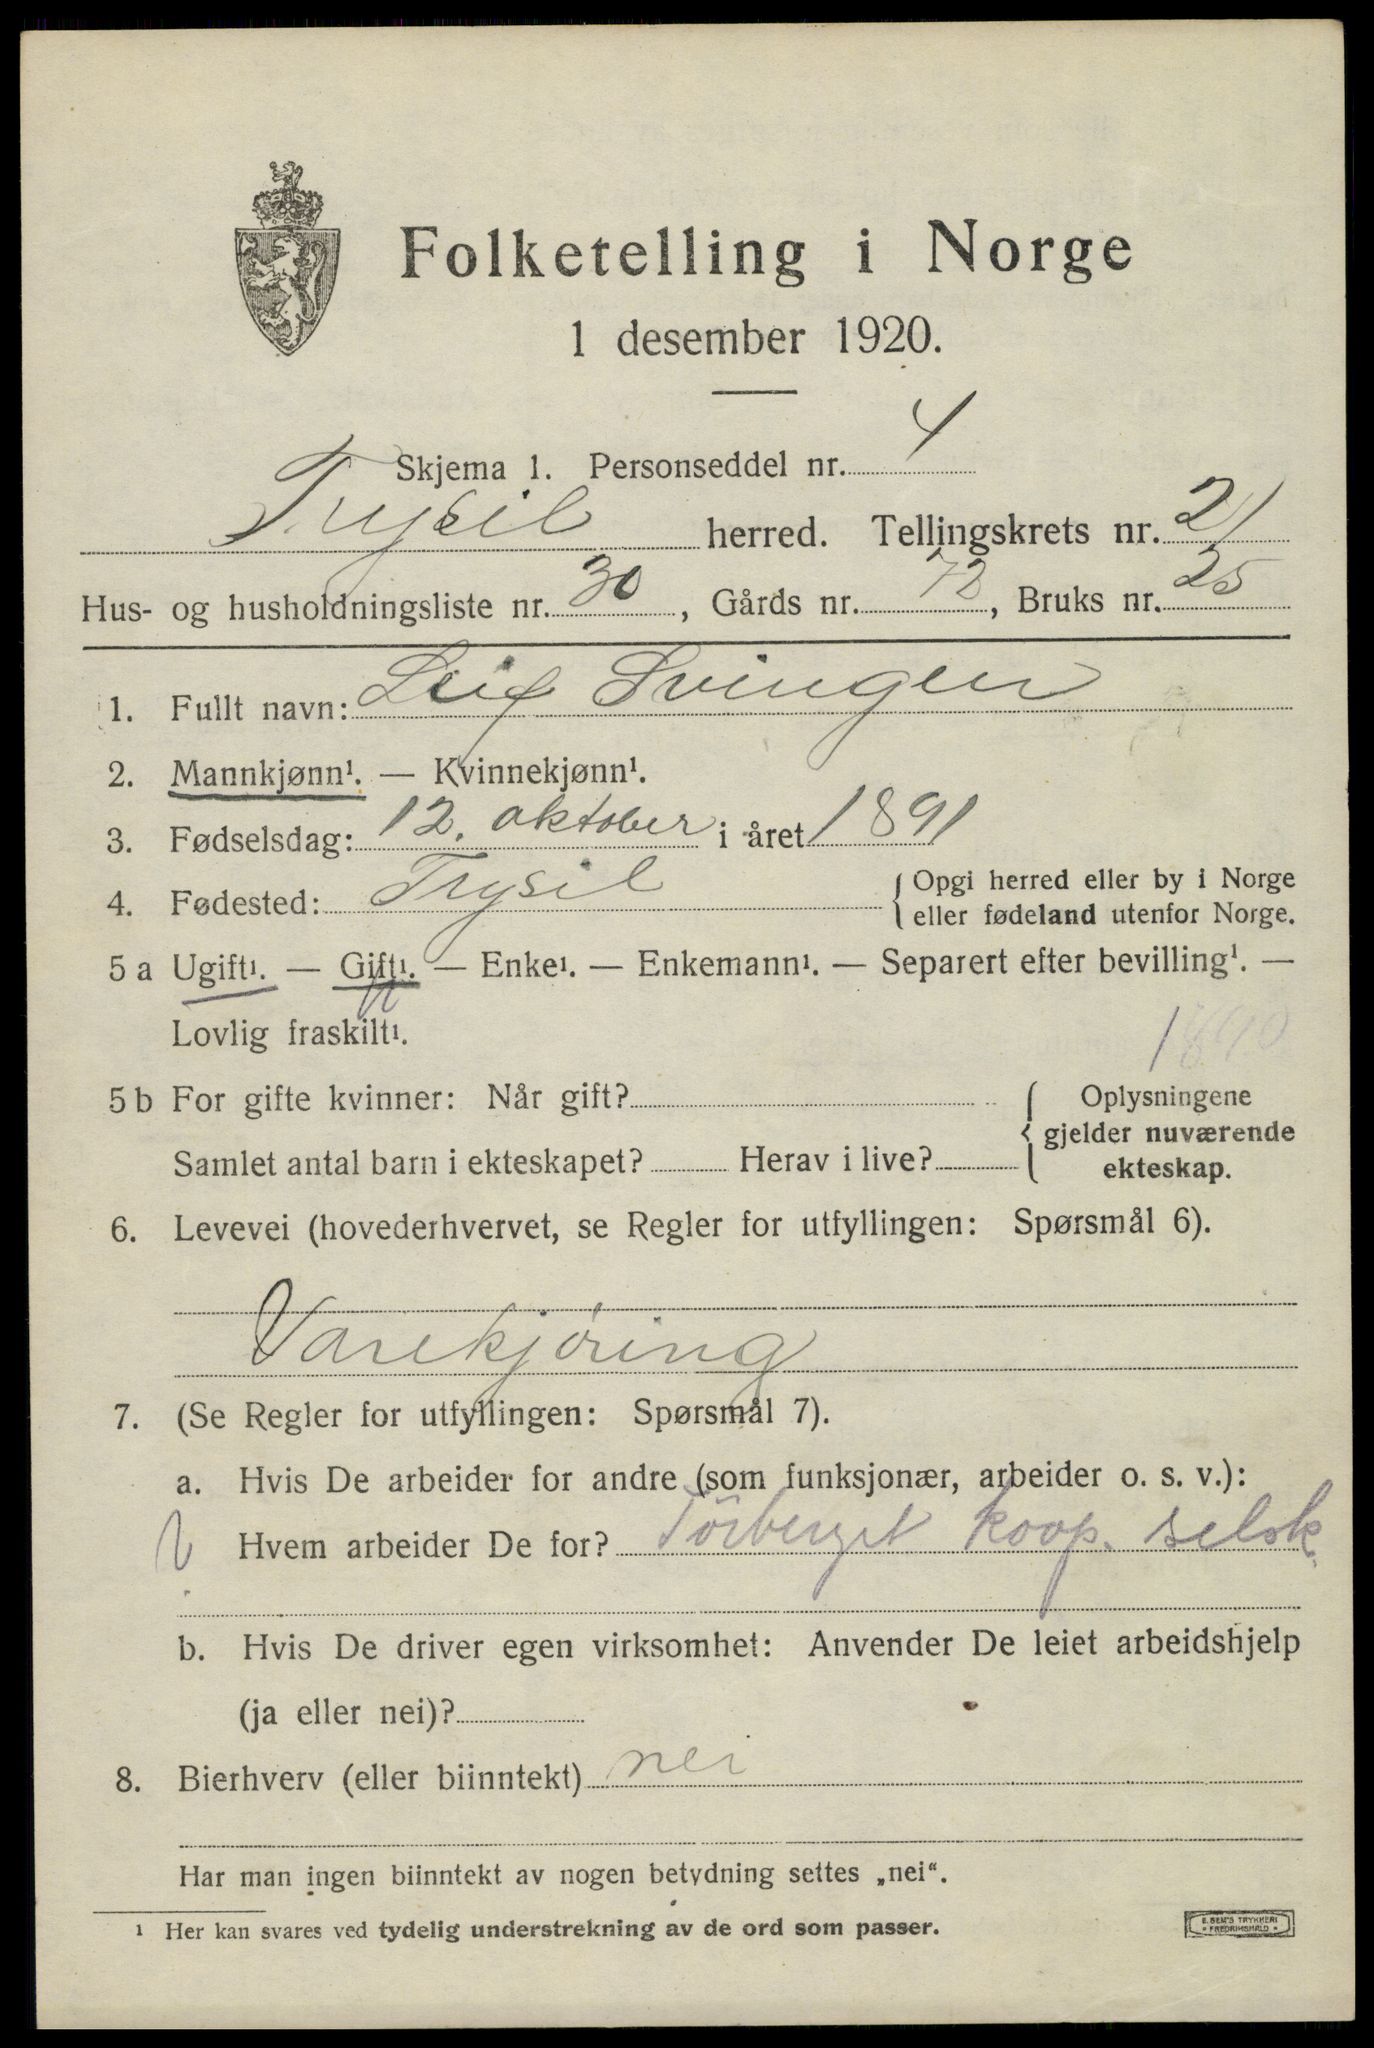 Folketelling i Norge
1 desember 1920.
Skjema 1. Personseddel nr. 4
Trysil herred. Tellingskrets nr. 21
Hus- og husholdningsliste nr. 30, Gårds nr. 72, Bruks nr. 25
1. Fullt navn: Leif Svingen
2. Mannkjønn¹. — Kvinnekjønn¹.
3. Fødselsdag: 12. oktober i året 1891
4. Fødested: Trysil { Opgi herred eller by i Norge
eller fødeland utenfor Norge.
5 a Ugift¹. — Gift¹. — Enke¹. — Enkemann¹. — Separert efter bevilling¹. —
Lovlig fraskilt¹.
1890
5 b For gifte kvinner: Når gift? { Oplysningene
gjelder nuværende
Samlet antal barn i ekteskapet? Herav i live? ekteskap.
6. Levevei (hovederhvervet, se Regler for utfyllingen: Spørsmål 6).
Varekjøring
7. (Se Regler for utfyllingen: Spørsmål 7).
a. Hvis De arbeider for andre (som funksjonær, arbeider o. s. v.):
Hvem arbeider De for? Törberget koop. selsk.
b. Hvis De driver egen virksomhet: Anvender De leiet arbeidshjelp
(ja eller nei)?
8. Bierhverv (eller biinntekt) nei
Har man ingen biinntekt av nogen betydning settes „nei“.
¹ Her kan svares ved tydelig understrekning av de ord som passer.
E. SEM'S TRYKKERI
FREDRIKSHALD